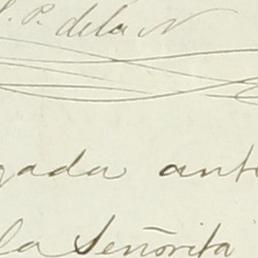 S. P. de la N
gada ant
la Señorita